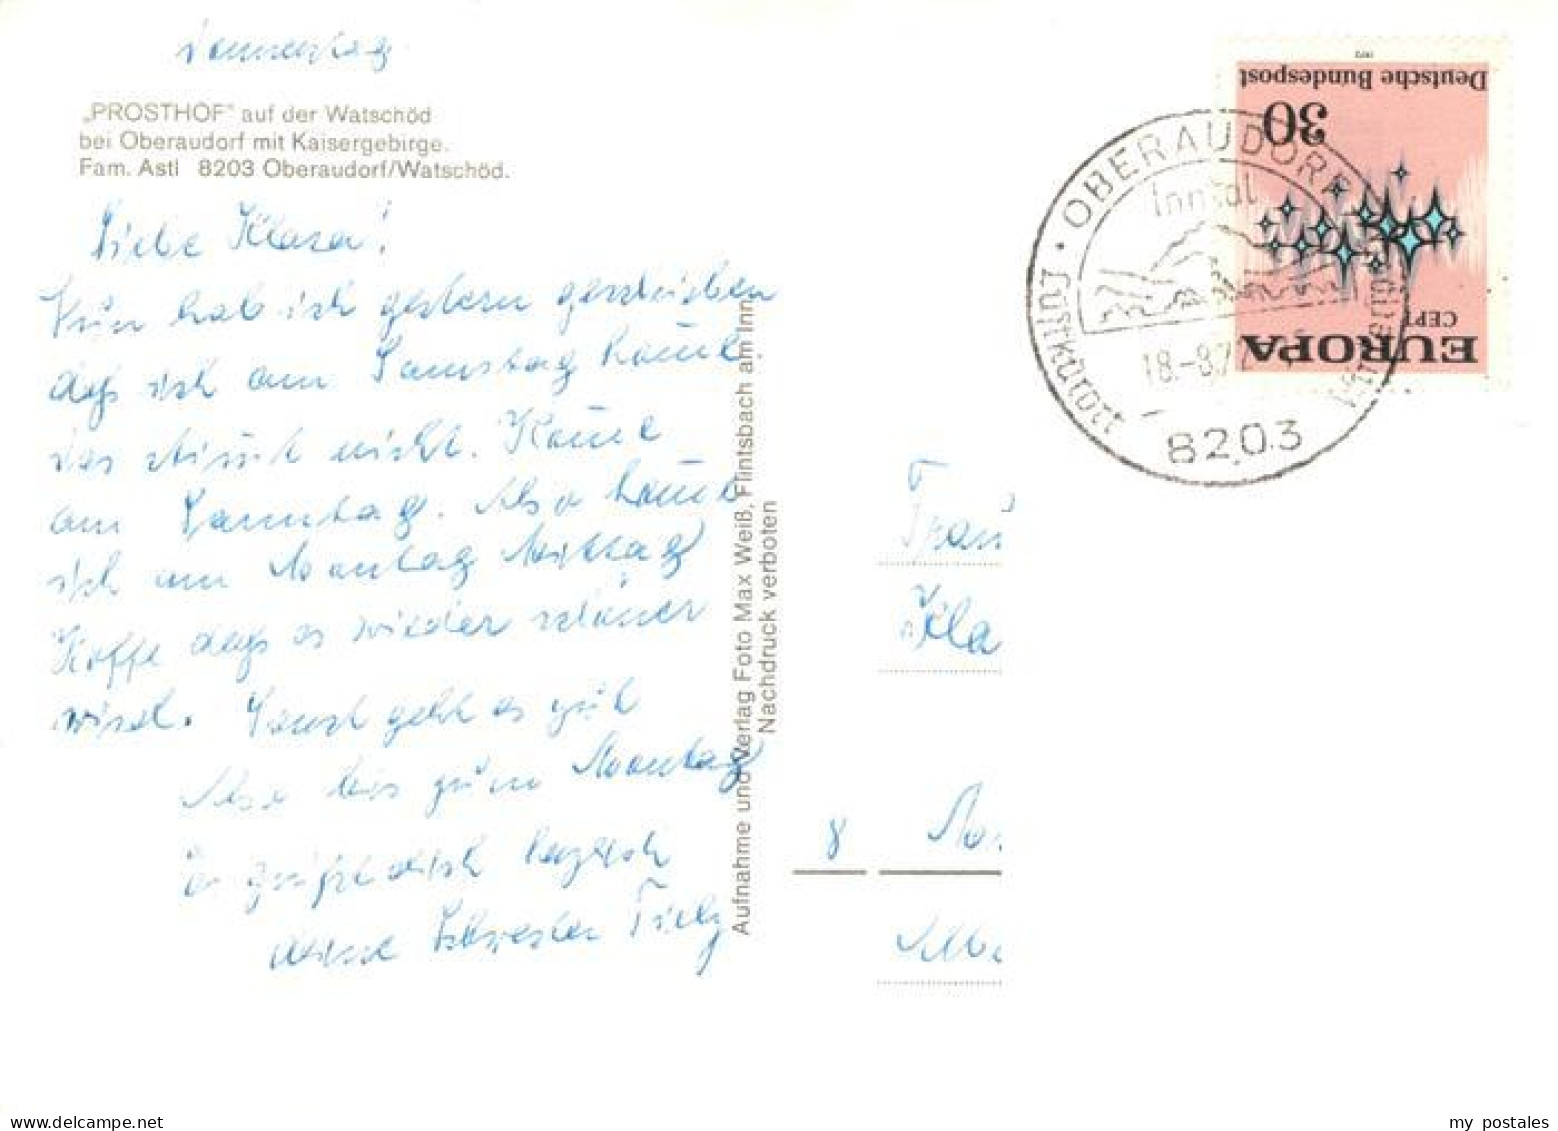 Donnerstag
„PROSTHOF" auf der Watschöd
bei Oberaudorf mit Kaisergebirge.
Fam. Astl 8203 Oberaudorf/Watschöd.
Liebe Klara!
Nun hab ich gestern geschrieben
daß ich am Samstag komme.
das stimmt nicht. Komme
am Sonntag. Also komm
ich am Montag Mittag
Hoffe daß es wieder schöner
wird. Sonst geht es gut
Also bis zum Montag
herzlich
deine Schwester
Aufnahme und Verlag Foto Max Weiß, Flintsbach am Inn
Nachdruck verboten
Frau
Kla
8
1972
Deutsche Bundespost
30
CEPT
EUROPA
· OBERAUDORF
Inntal
Luftkurort
18.-8.72
8203
my postales